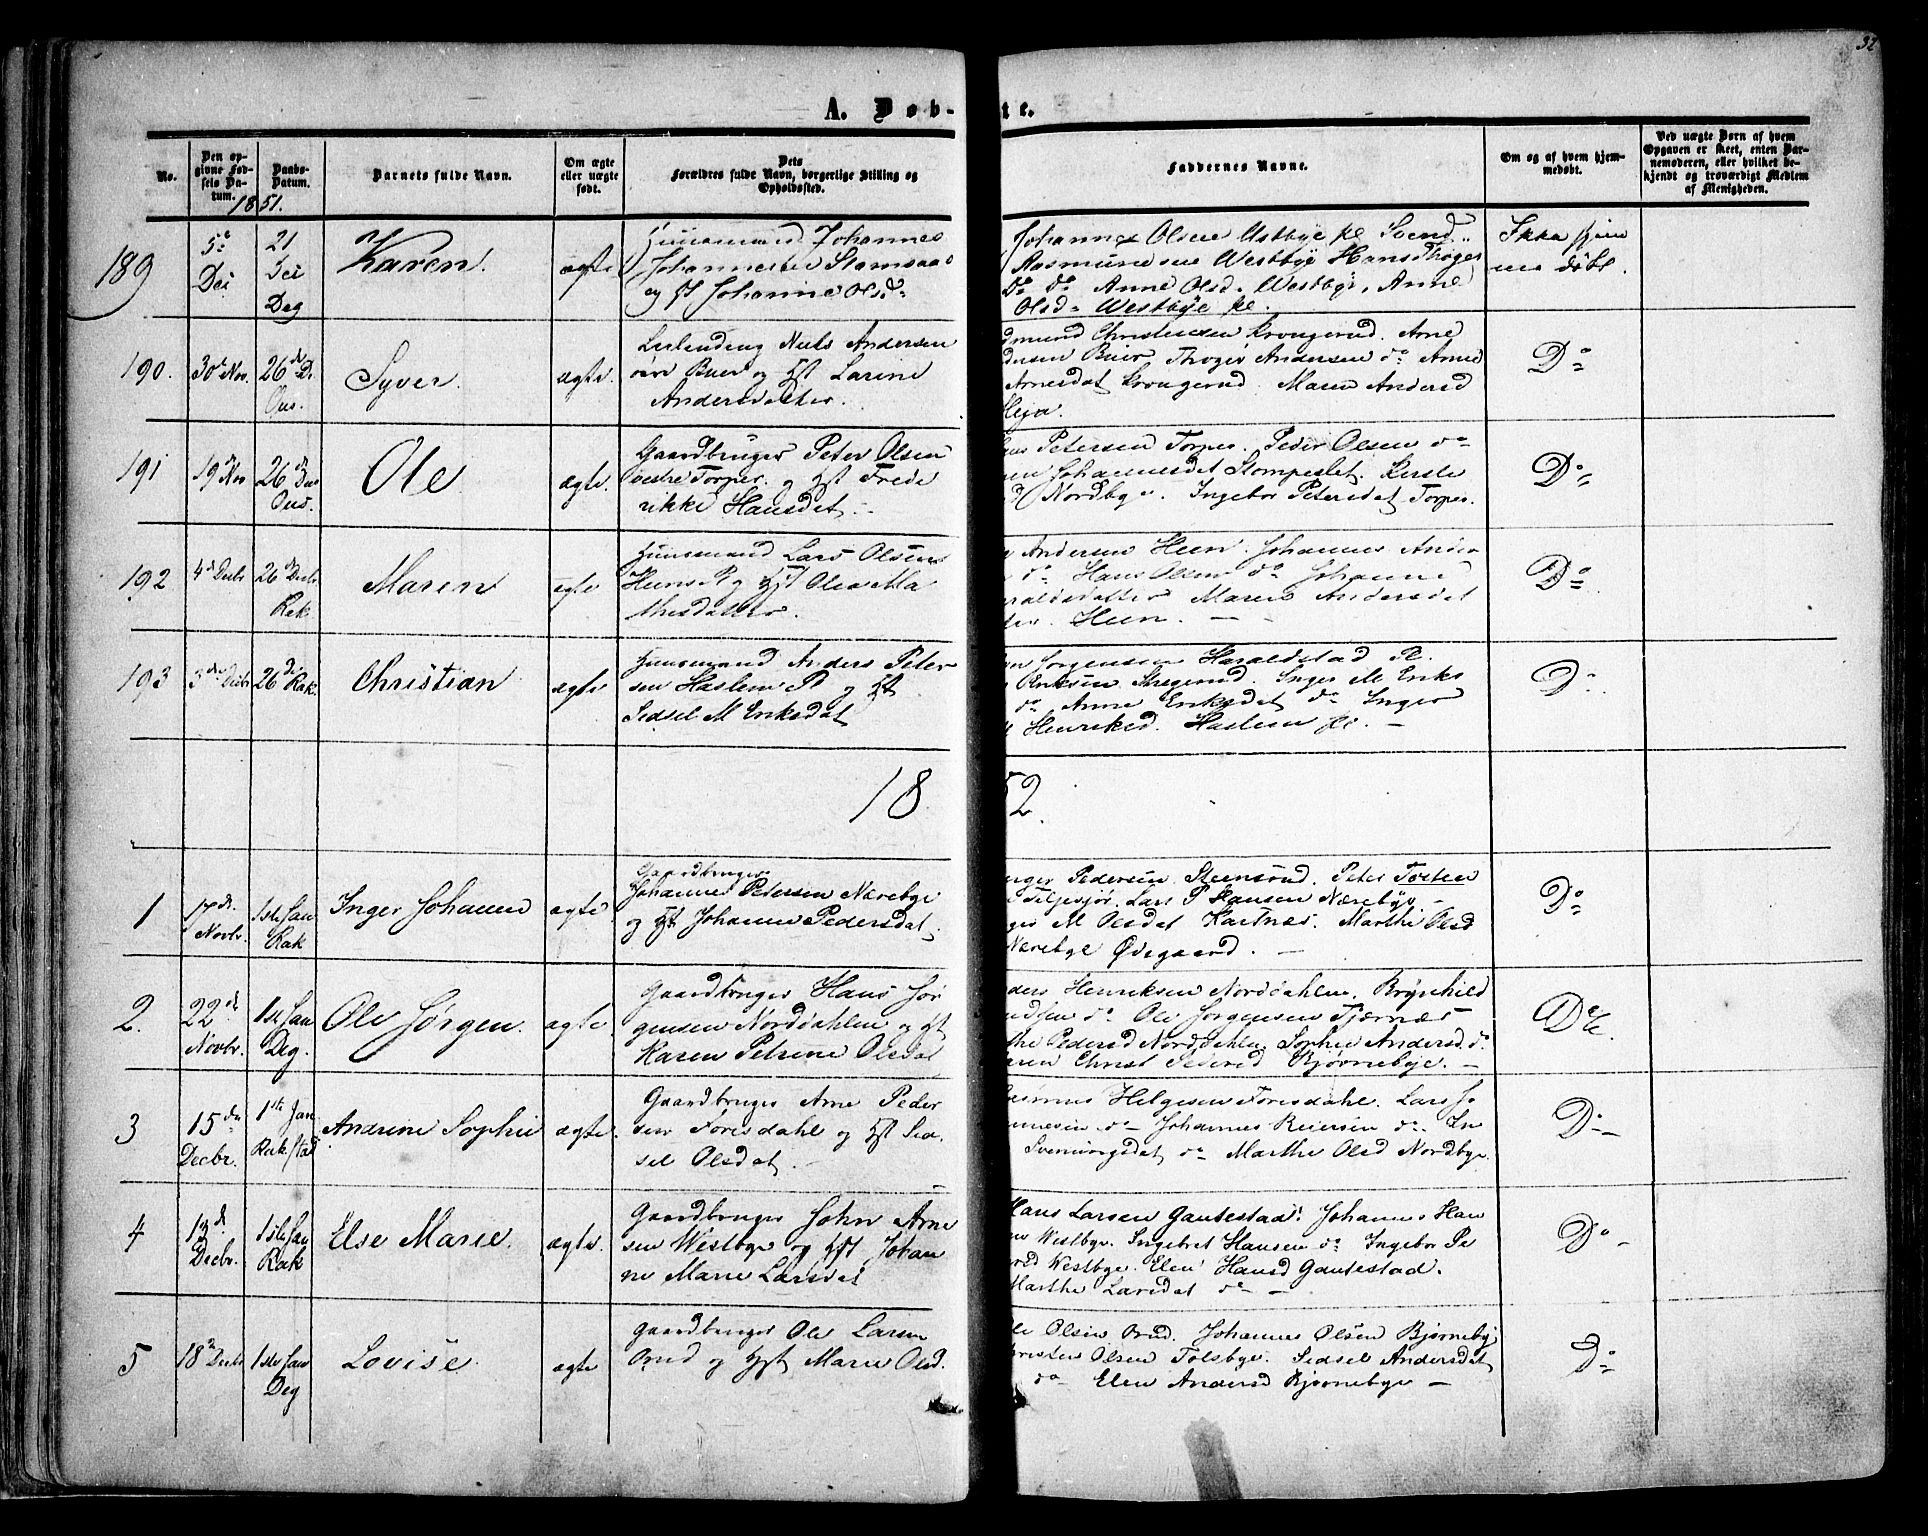 32
A. Døb-
te.
No.
Den op-
givne Fød-
sels Da-
tum.
Daabs-
Datum.
1851.
Barnets fulde Navn.
Om ægte
eller uægte
født.
Dets
Forældres fulde Navn, borgerlige Stilling og
Opholdssted.
Faddernes Navne.
Om og af hvem hjem-
medøbt.
Ved uægte Børn af hvem
Opgaven er skeet, enten Bar-
nemoderen, eller hvilket be-
kjendt og troværdigt Medlem
af Menigheden.
189
5
21
Deg
Karen.
ægte
Huusmand Johannes
Johannesen
og H Johanne Olsd
Johannes Olsen Westbye
Rasmussen Westbye Hans
Do do Anne Olsd. Westbye, Anne
Olsd Westbye
Ikke hjem
me døbt.
190.
30 Nov.
26 D
Ous.
Syver.
ægte.
Leilending Niels Andersen
øvre Buer og Hst Larine
Andersdatter.
Christensen Krongerud. Arne
Buer. Andersen do Anne
Arnesdat Krongerud. Maren Andersd
Heja.
Do
191
19 Nov
26 D
Ous.
Ole
ægte.
Gaardbruger Peter Olsen
vestre Torper. og Hst Frede
rikke Hansdat.
Petersen Torper. Peder Olsen do
Johannesdat Kirsti
Nordbye. Ingebor Petersdat Torper.
Do
192
4 Decbr
26 Decbr
Rak
Maren
ægte
Huusmand Lars Olsen
og Hst Olea Ma
thisdatter.
Andersen Heen. Johannes Ander
do Hans Olsen do Johanne
raldsdatter Maren Andersdat
Heen.
Do
193
3 Decbr
26 Rak
Christian
ægte
Huusmand Anders Peter
sen Haslem P og Hst
Sidsel M Eriksdat
Jorgensen Haraldstad Pl.
Eriksen Inger M Eriks
do Anne Eriksdat do Inger
Henriksd. Haslem pl.
Do
18
52.
1
17 d.
Novbr.
1ste Jan
Rak
Inger Johanne
ægte
Gaardbruger
Johannes Petersen Nærebye
og Hst Johanne Pedersdat.
Pedersen Steensrud. Peter Torsten
Lars P Hansen Nærebye.
M Olsdat Kartnæs. Marthe Olsd
Nærebye Ødegaard.
Do
2.
22 d
Novbr.
1ste Jan
Deg.
Ole Jørgen.
ægte.
Gaardbruger Hans Jør
gensen Norddahlen og Hst
Karen Petrine Olsdat
ders Henriksen Norddahlen. Brynhild
do Ole Jørgensen Tjærnæs
the Pedersd Norddahlen. Sophie Andersd. do
aren Christ Pedersd Bjørnebye.
Do
3
15 de
Decbr.
1ste Jan
Rakkestad
Andrine Sophie
ægte.
Gaardbruger Arne Peder
sen Førisdahl og Hst Sid
sel Olsdat.
Helgesen Førisdahl. Lars Jo
annesen do Johannes Reiersen do. En
do Marthe Olsd Nordbye.
Do
4
13 d
Decbr.
1ste Jan
Rak
Else Marie.
ægte.
Gaardbruger John Arne
sen Westbye og Hst Johan
ne Marie Larsdat
Hans Larsen Gautestad. Johannes Han
en Westbye. Ingebret Hansen do Ingebor Pe
Westbye. Elen Hansd Gautestad.
Marthe Larsdat do
Do
5
18 Decbr
1ste Jan
Deg
Lovise.
ægte
Gaardbruger Ole Larsen
og Hst Marie Olsd.
le Olsen Johannes Olsen Bjørneby
risten Olsen Tolsbye. Sidsel Andersdat
do Elen Andersd Bjørnebye
Do